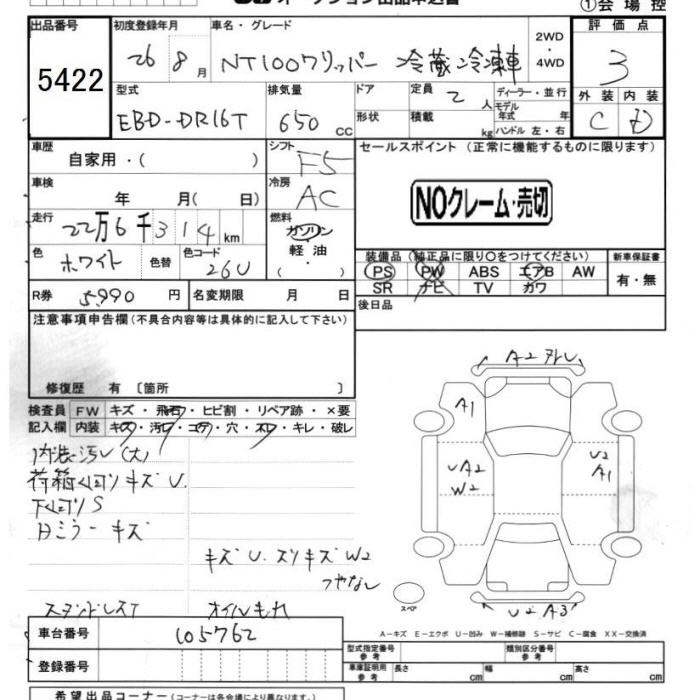 オークション出品申込書
①会場控
出品番号 初度登録年月 車名・グレード 2WD・4WD 評価点
5422 26 8月 NT100クリッパー 冷蔵冷凍車 3
型式 排気量 ドア 定員 ディーラー・並行 外装 内装
EBD-DR16T 650 CC 形状 積載 2人 kg モデル年式 年 ハンドル 左・右 C D
車歴 シフト セールスポイント (正常に機能するものに限ります)
自家用・( ) F5
車検 冷房
年 月( 日) AC NOクレーム・売切
走行 燃料
22万6千314km ガソリン 軽油 ・( )
色 ホワイト 色替 色コード 26U
装備品(純正品に限り○をつけてください) 新車保証書
PS PW ABS エアB AW 有・無
SR ナビ TV カワ
R券 5,990円 名変期限 月 日 後日品
注意事項申告欄(不具合内容等は具体的に記入して下さい)
修復歴 有 〔箇所 〕
検査員 FW キズ・飛石・ヒビ割・リペア跡・×要
記入欄 内装 キズ・汚レ・コゲ・穴・スレ・キレ・破レ
内装汚レ(大)
荷箱 キズ U
下 S
キズ
キズ U. スリキズ W2
つやなし
オイルもれ
A2
A1
UA2
W2
U2
A1
U2 A3
スペア
A-キズ E-エクボ U-凹み W-補修跡 S-サビ C-腐食 XX-交換済
車台番号 105762
登録番号
型式指定番号 参考 類別区分番号 参考
車庫証明用 参考 長さ cm 幅 cm 高さ cm
希望出品コーナー(コーナーは各会場により異なります。)